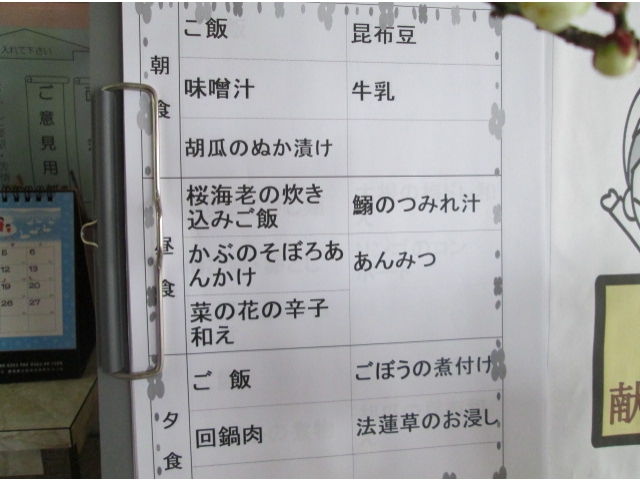 朝食
ご飯
昆布豆
味噌汁
牛乳
胡瓜のぬか漬け
昼食
桜海老の炊き
込みご飯
鰯のつみれ汁
かぶのそぼろあ
んかけ
あんみつ
菜の花の辛子
和え
夕食
ご 飯
ごぼうの煮付け
回鍋肉
法蓮草のお浸し
ご意見用
入れて下さい
献